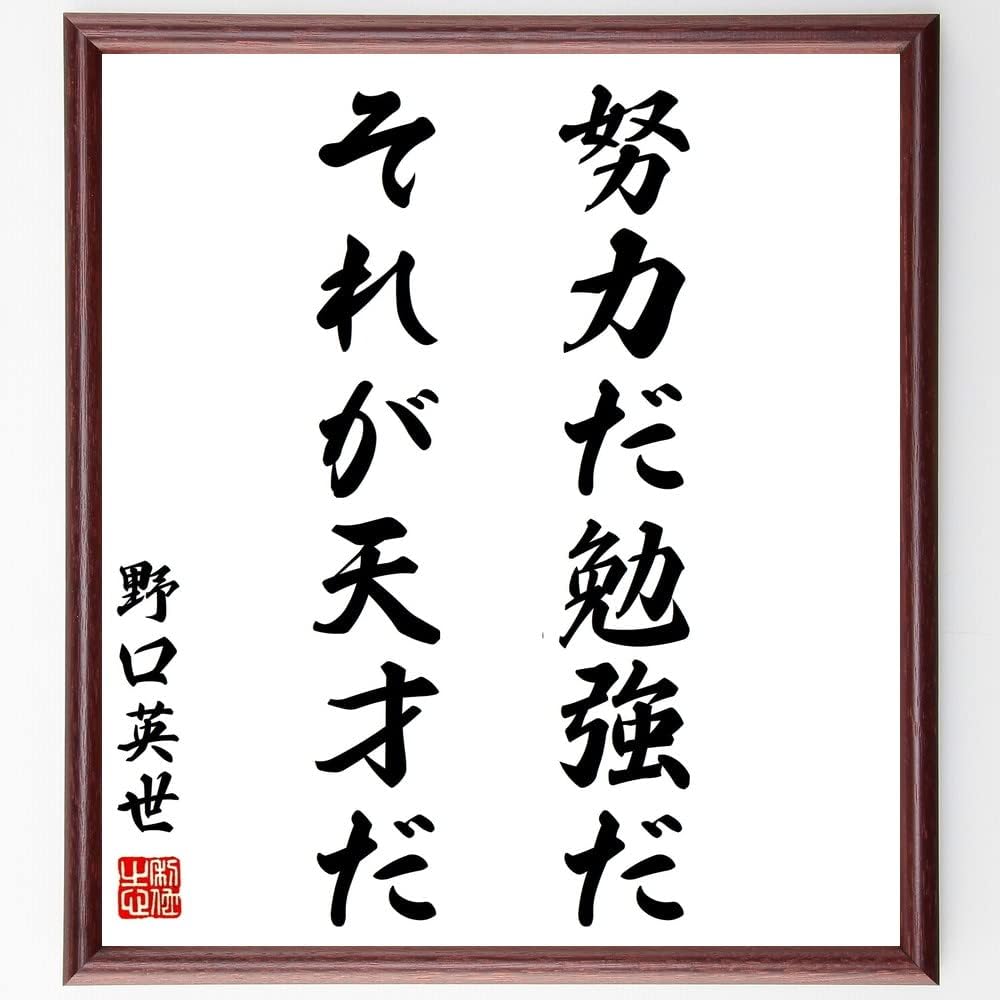 努力だ勉強だ
それが天才だ
野口英世